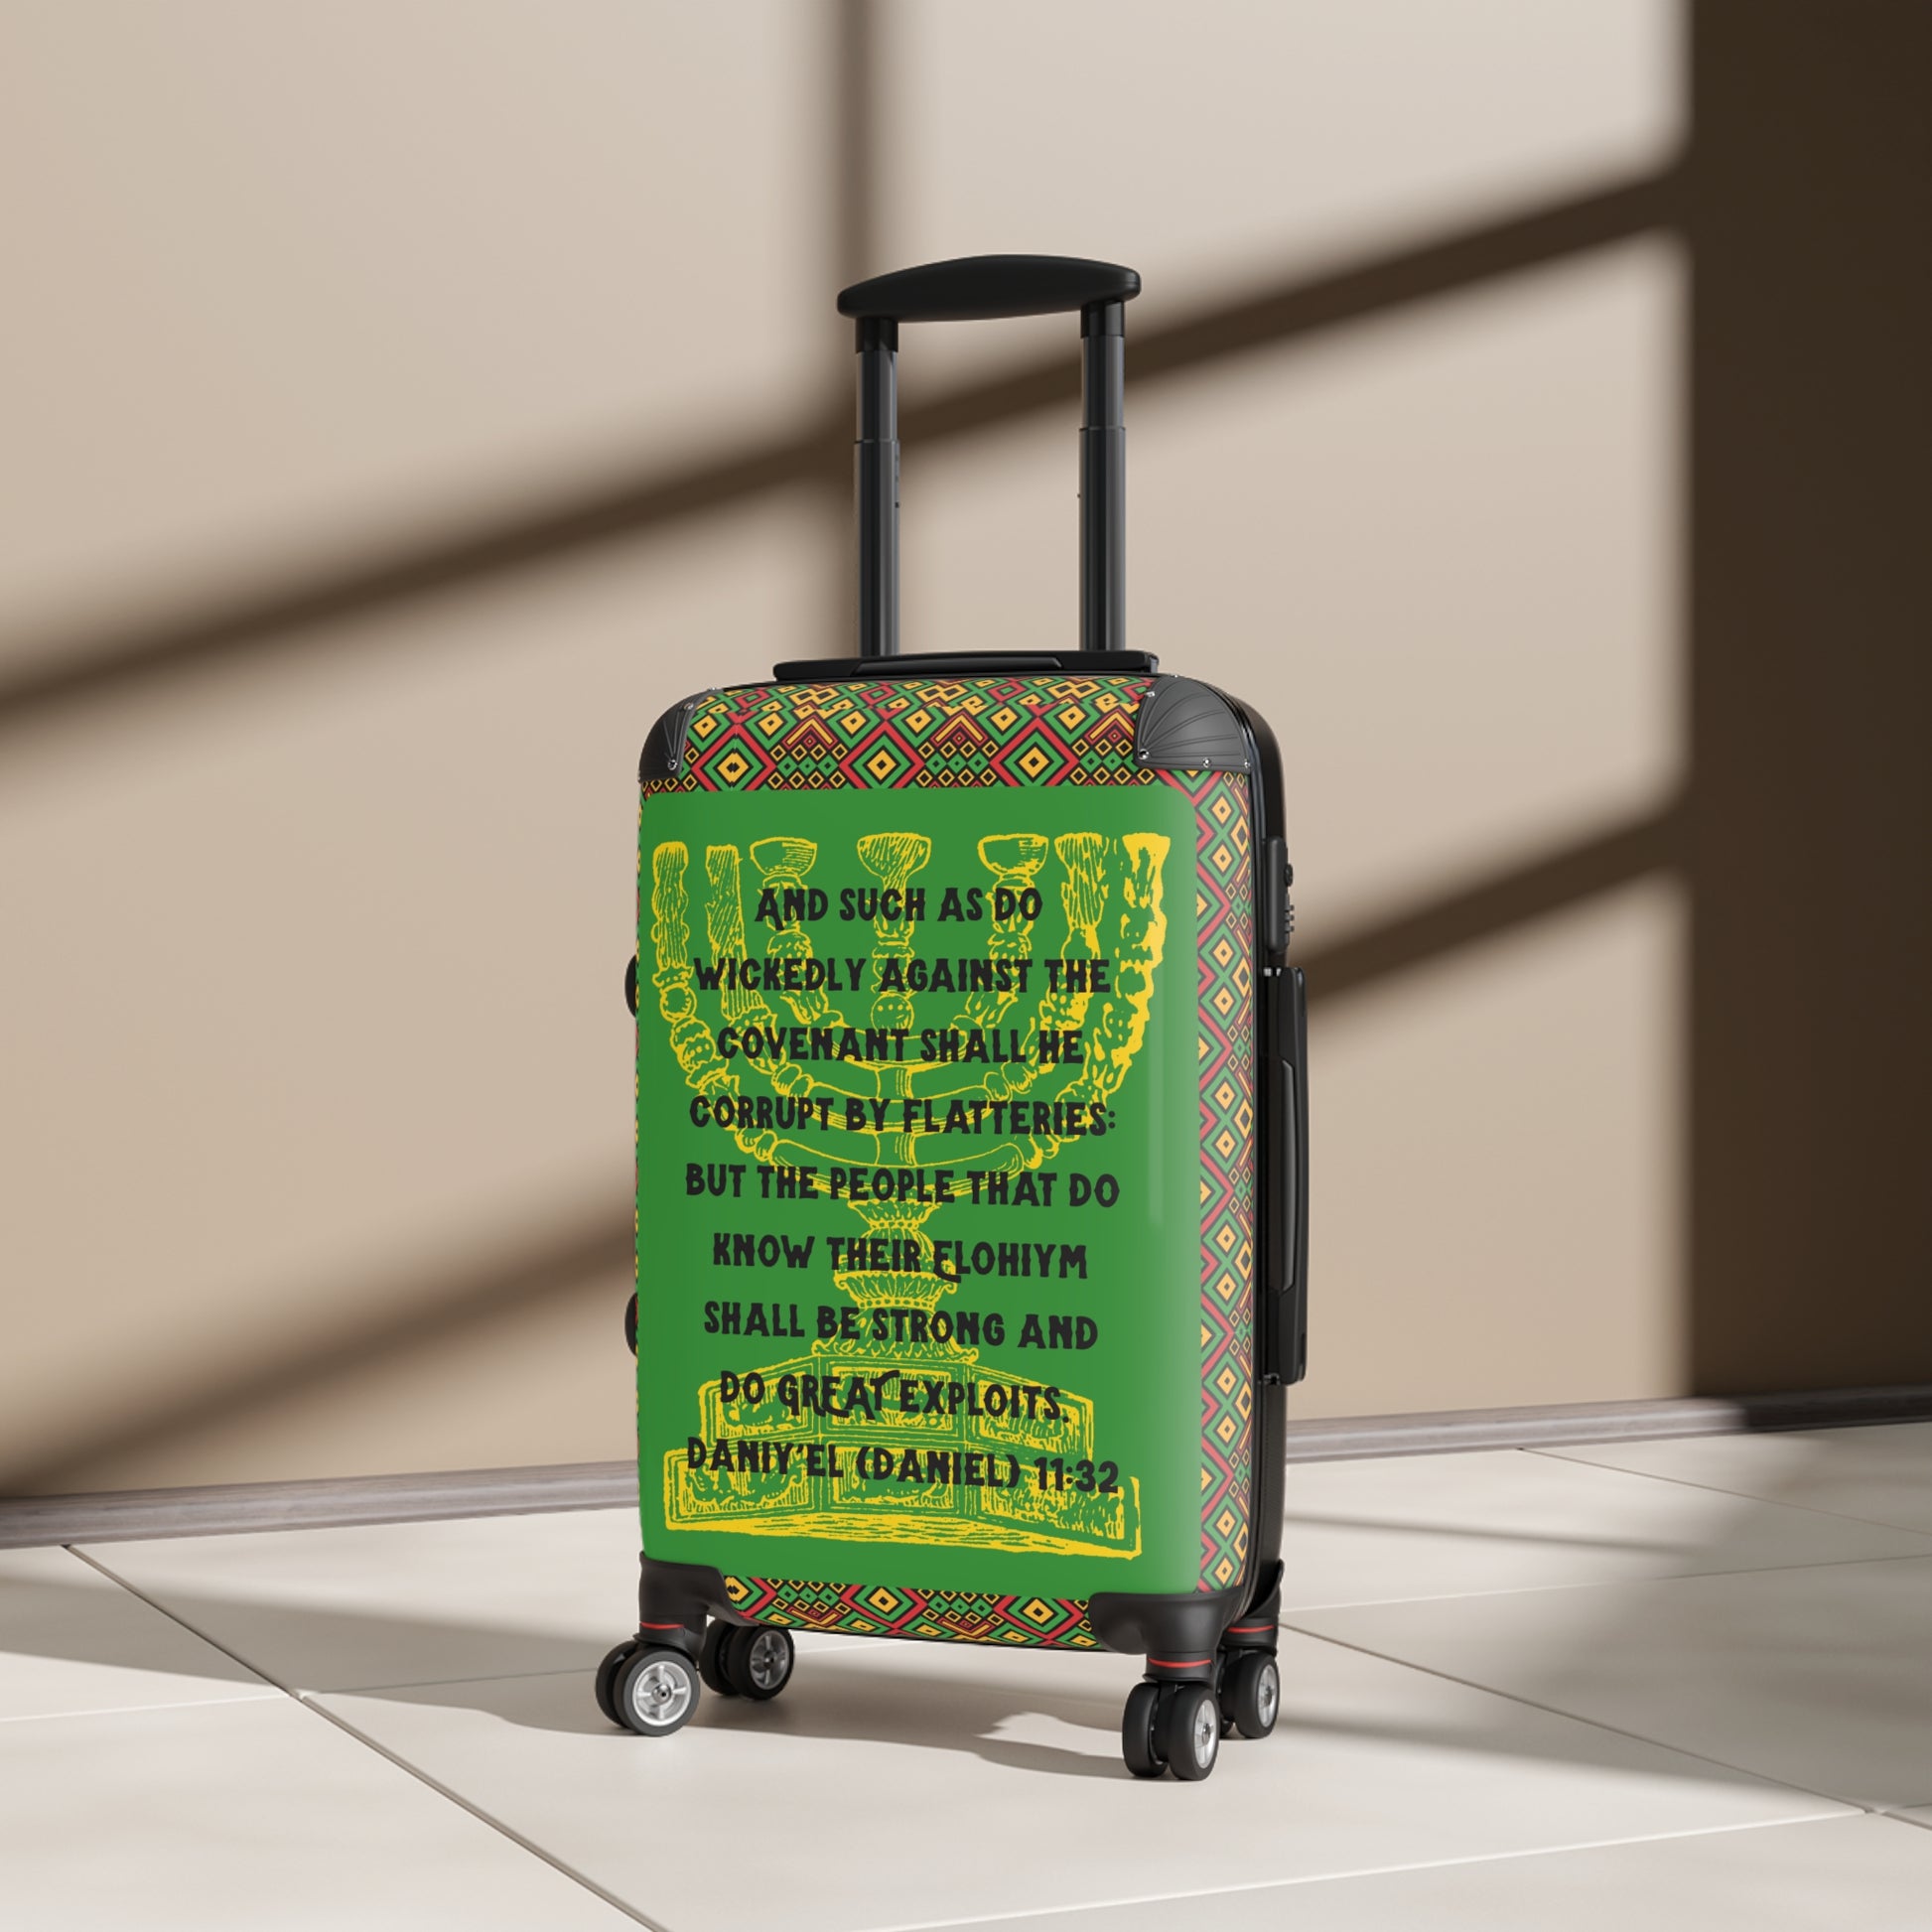 AND SUCH AS DO
WICKEDLY AGAINST THE
COVENANT SHALL HE
CORRUPT BY FLATTERIES:
BUT THE PEOPLE THAT DO
KNOW THEIR ELOHIYM
SHALL BE STRONG AND
DO GREAT EXPLOITS.
DANIY'EL (DANIEL) 11:32